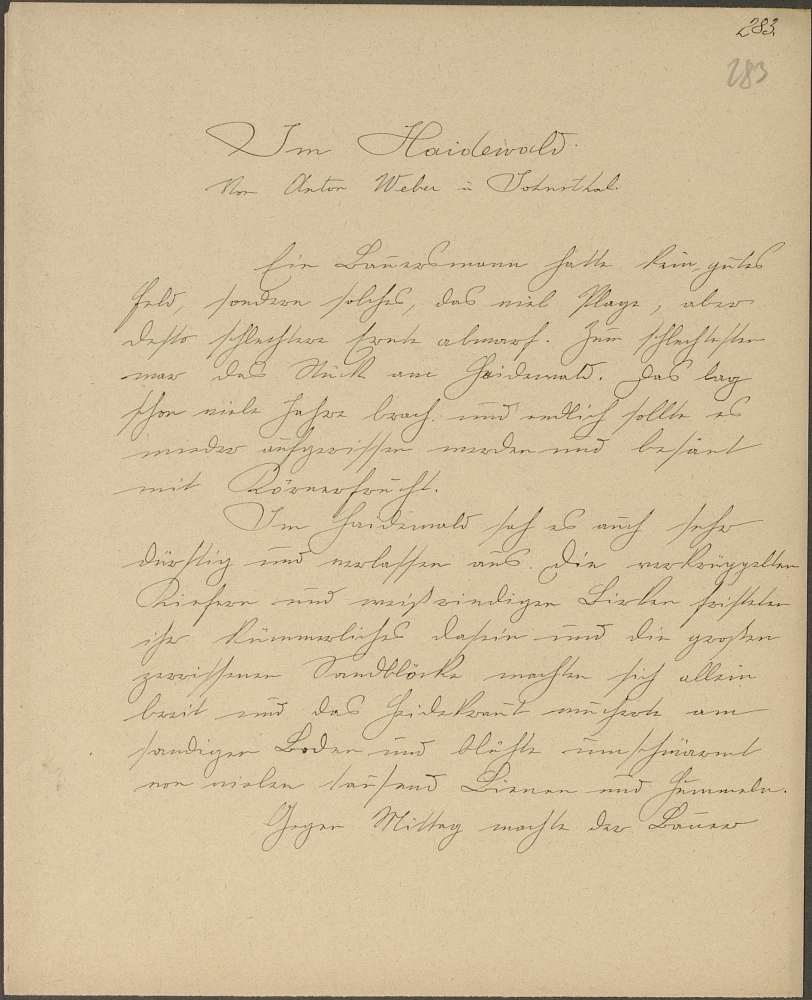 283
283
Im Haidewald.
Von Anton Weber in Johnsthal.
Ein Bauersmann hatte kein gutes
Feld, sondern solches, das viel Plage, aber
desto schlechtere Ernte abwarf. Zum schlechtesten
war das Stück am Haidewald. Das lag
schon viele Jahre brach und endlich sollte es
wieder aufgerissen werden und besäet
mit Körnerfrucht.
Im Haidewald sah es auch sehr
dürftig und verlassen aus. Die verkrüppelten
Kiefern und weißrindigen Birken fristeten
ihr kümmerliches Dasein und die großen
zerrissenen Sandblöcke machten sich allein
breit und das Heidekraut wucherte am
sandigen Boden und blühte umschwärmt
von vielen tausend Bienen und Hummeln.
Gegen Mittag machte der Bauer